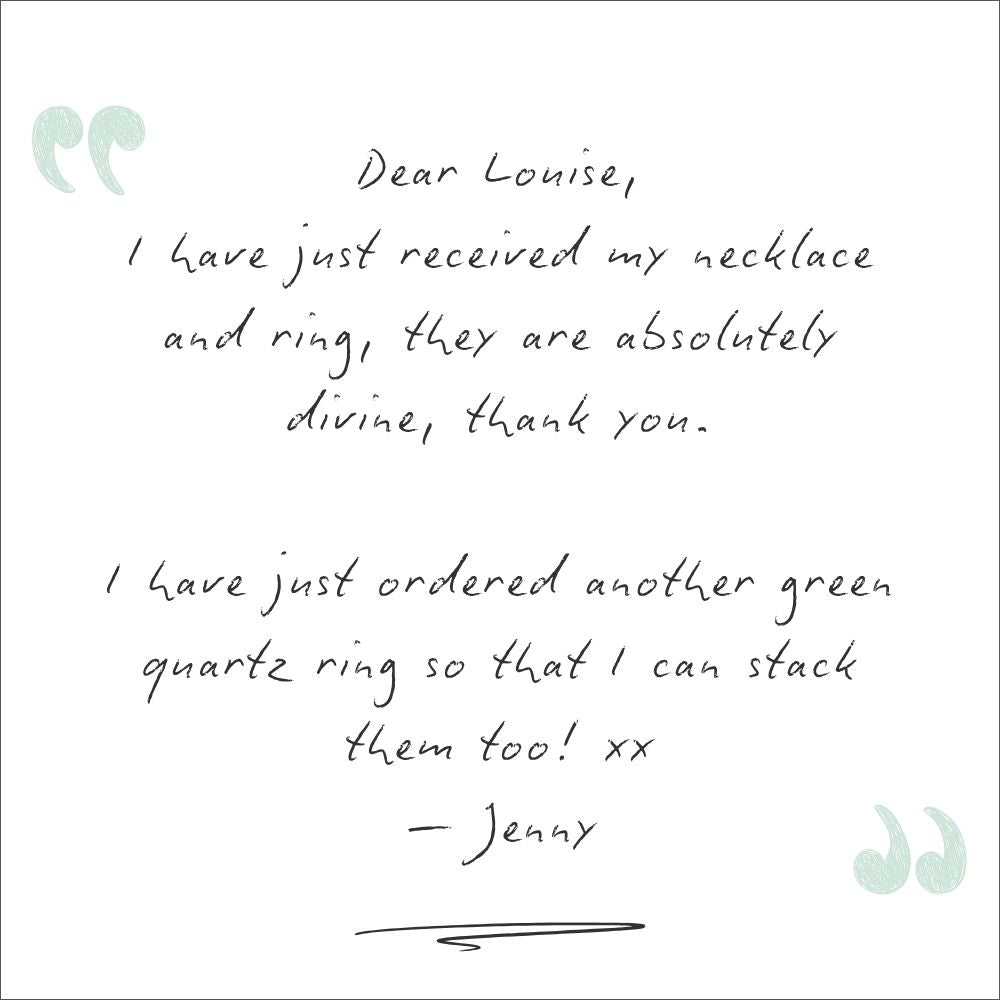 Dear Louise,
I have just received my necklace
and ring, they are absolutely
divine, thank you.
I have just ordered another green
quartz ring so that I can stack
them too! xx
– Jenny